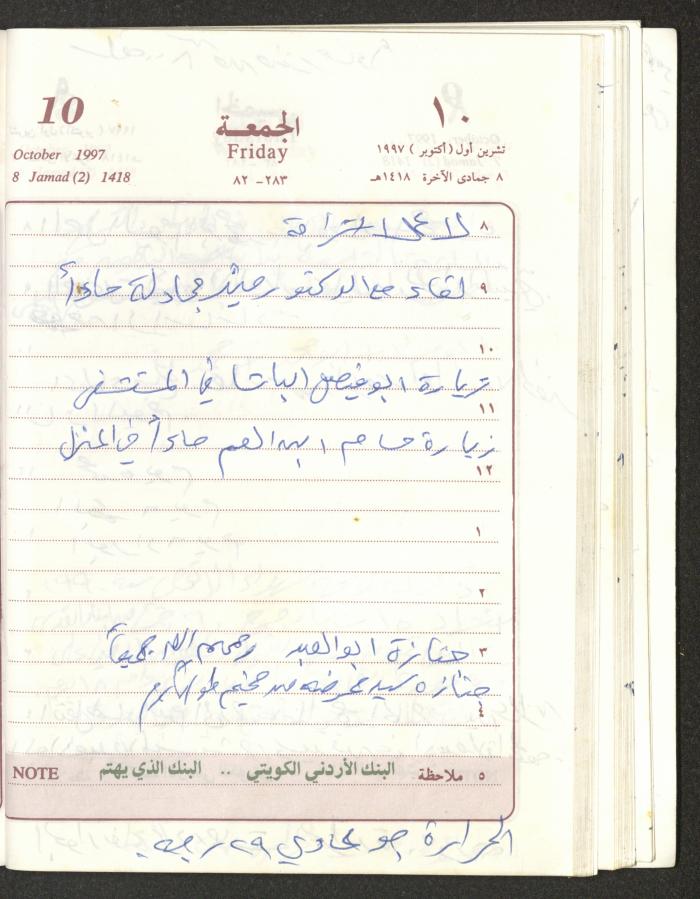 10
October 1997
8 Jamad (2) 1418
الجمعة
Friday
٨٢ -٢٨٣
١٠
تشرين أول (أكتوبر) ١٩٩٧
٨ جمادى الآخرة ١٤١٨هـ
٨
٩ لقاء مع الدكتور مجادلة مساءاً
١٠
زيارة ابو فيصل الباشا في المستشفى
١١
زيارة حسام ابن العم مساءاً في المنزل
١٢
١
٢
٣ جنازة ابو العبد رحمهم الله جميعاً
جنازة سيدة من مخيم طولكرم
٤
٥ ملاحظة البنك الأردني الكويتي .. البنك الذي يهتم NOTE
الحرارة جو عادي ٢٩ درجة